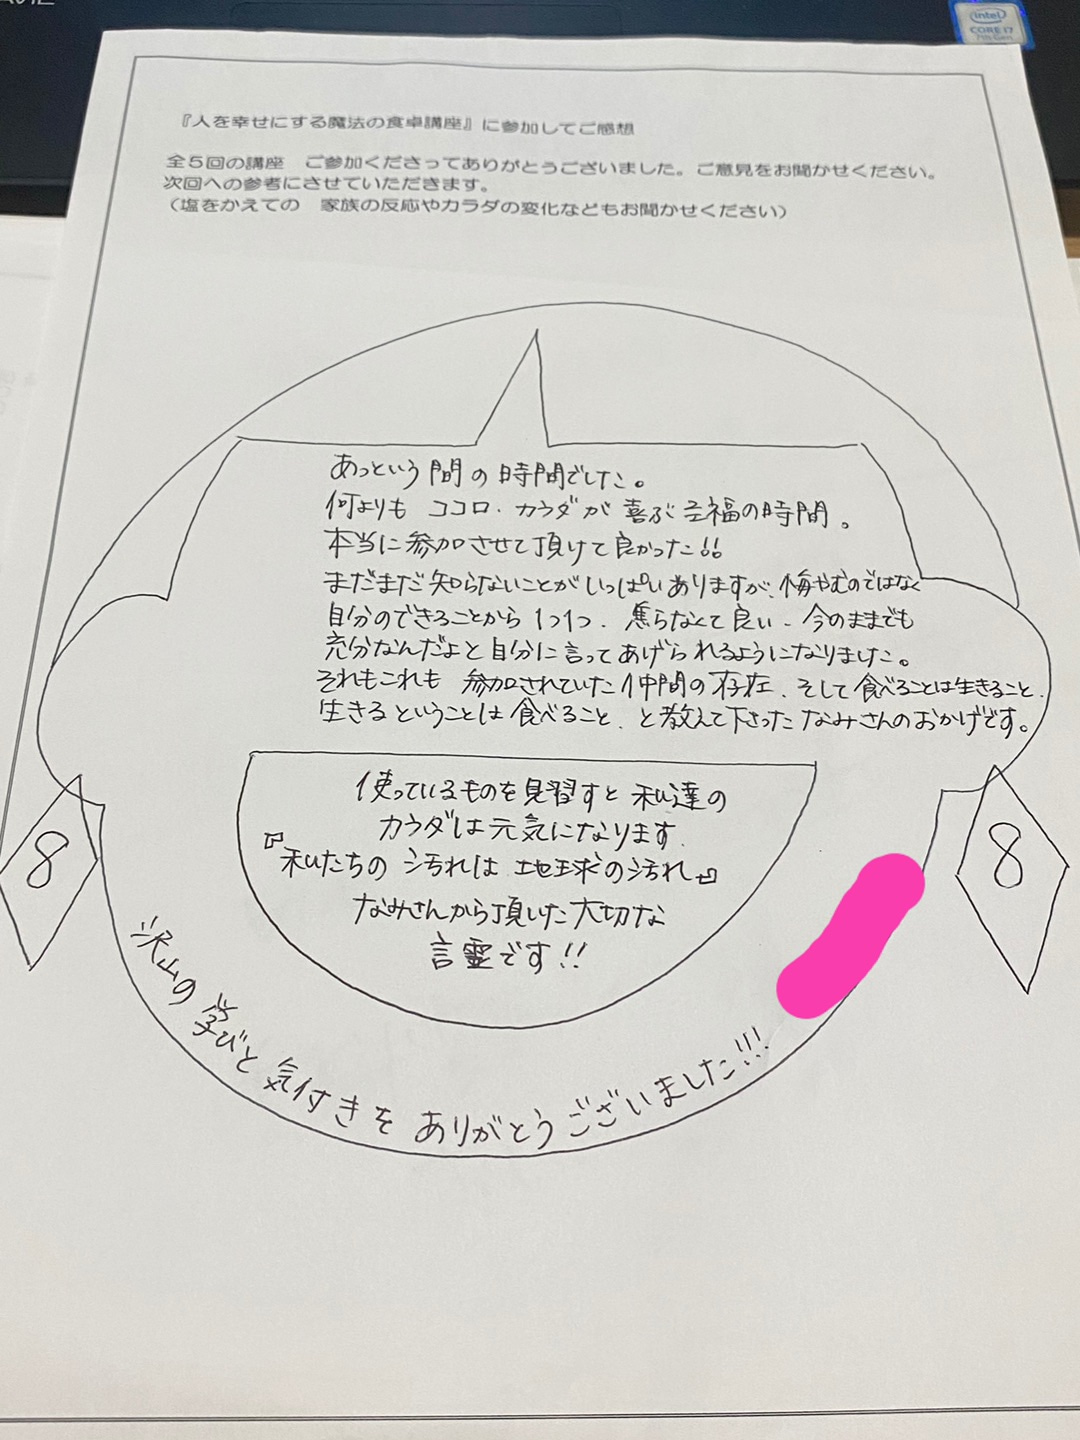 intel
CORE i7
7th Gen
『人を幸せにする魔法の食卓講座』に参加してご感想
全5回の講座　ご参加くださってありがとうございました。ご意見をお聞かせください。
次回への参考にさせていただきます。
（塩をかえての　家族の反応やカラダの変化などもお聞かせください）
あっという間の時間でした。
何よりも ココロ・カラダが 喜ぶ 至福の時間。
本当に参加させて頂けて良かった!!
まだまだ知らないことがいっぱいありますが、悔やむのではなく
自分のできることから1つ1つ、焦らなくて良い、今のままでも
充分なんだよと自分に言ってあげられるようになりました。
それもこれも 参加されていた仲間の存在、そして食べることは生きること、
生きるということは食べること、と教えて下さったなみさんのおかげです。
使っているものを見習すと私達の
カラダは元気になります.
『私たちの汚れは地球の汚れ』
なみさんから頂いた大切な
言霊です!!
8
8
沢山の学びと気付きをありがとうございました!!!